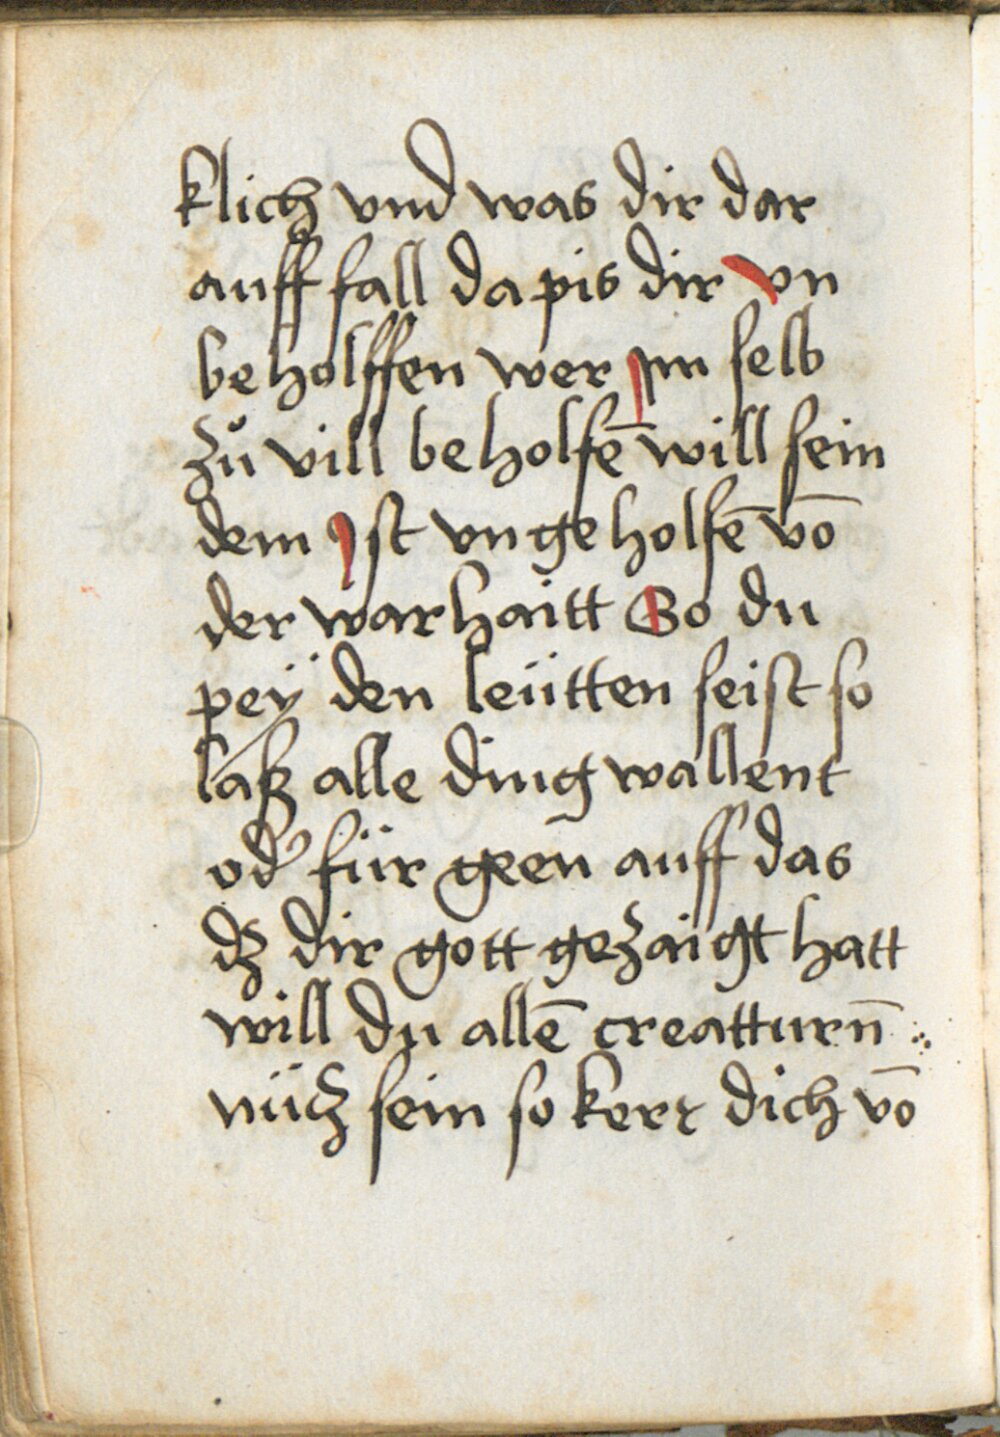 klich vnd was dir dar
auff fall da pis dir vn
beholffen wer jm selb
zů vill beholfē will sein
dem Jst vngeholfē vō
der warhaitt So du
peÿ den leütten seist so
laß alle ding wallent
od' für geen̄ auff das
dz dir gott gezaigt hatt
will du allē creatturn̄
nütz sein so kert dich vō